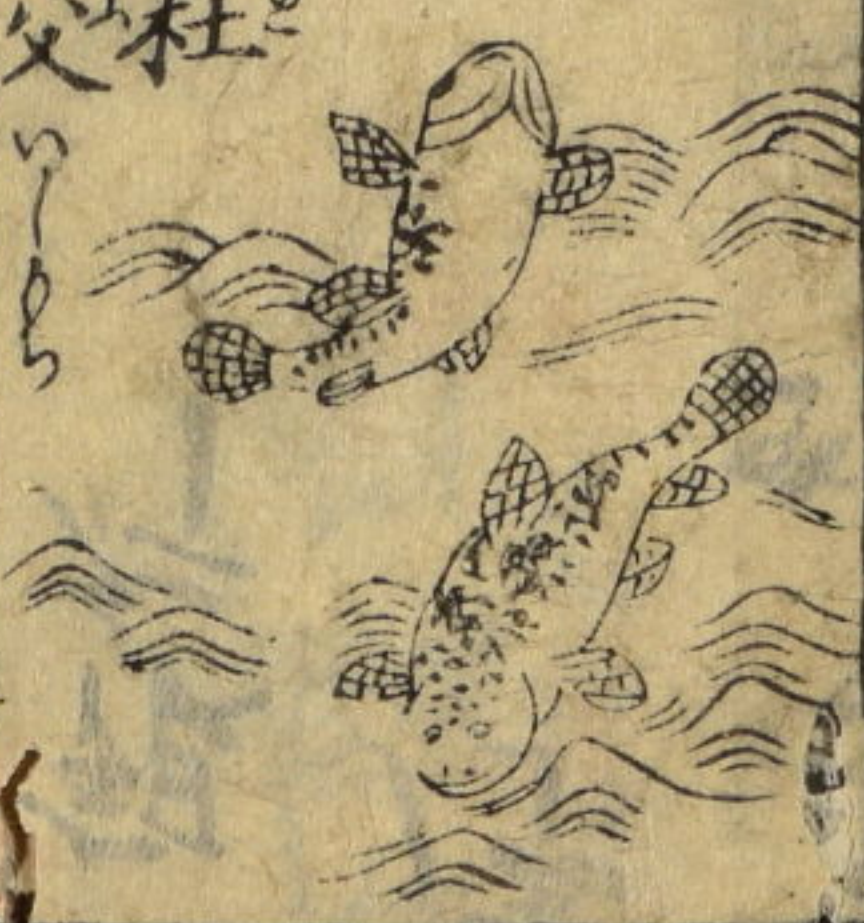 杜父
いしもち